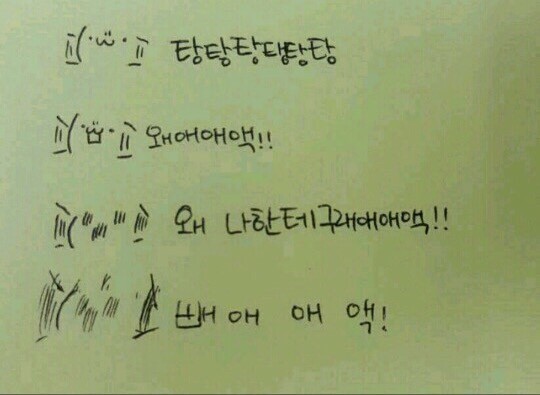 탕탕탕탬탕탕
왜애애액!!
왜 나한테구래애애액!!
빼애 애 액!